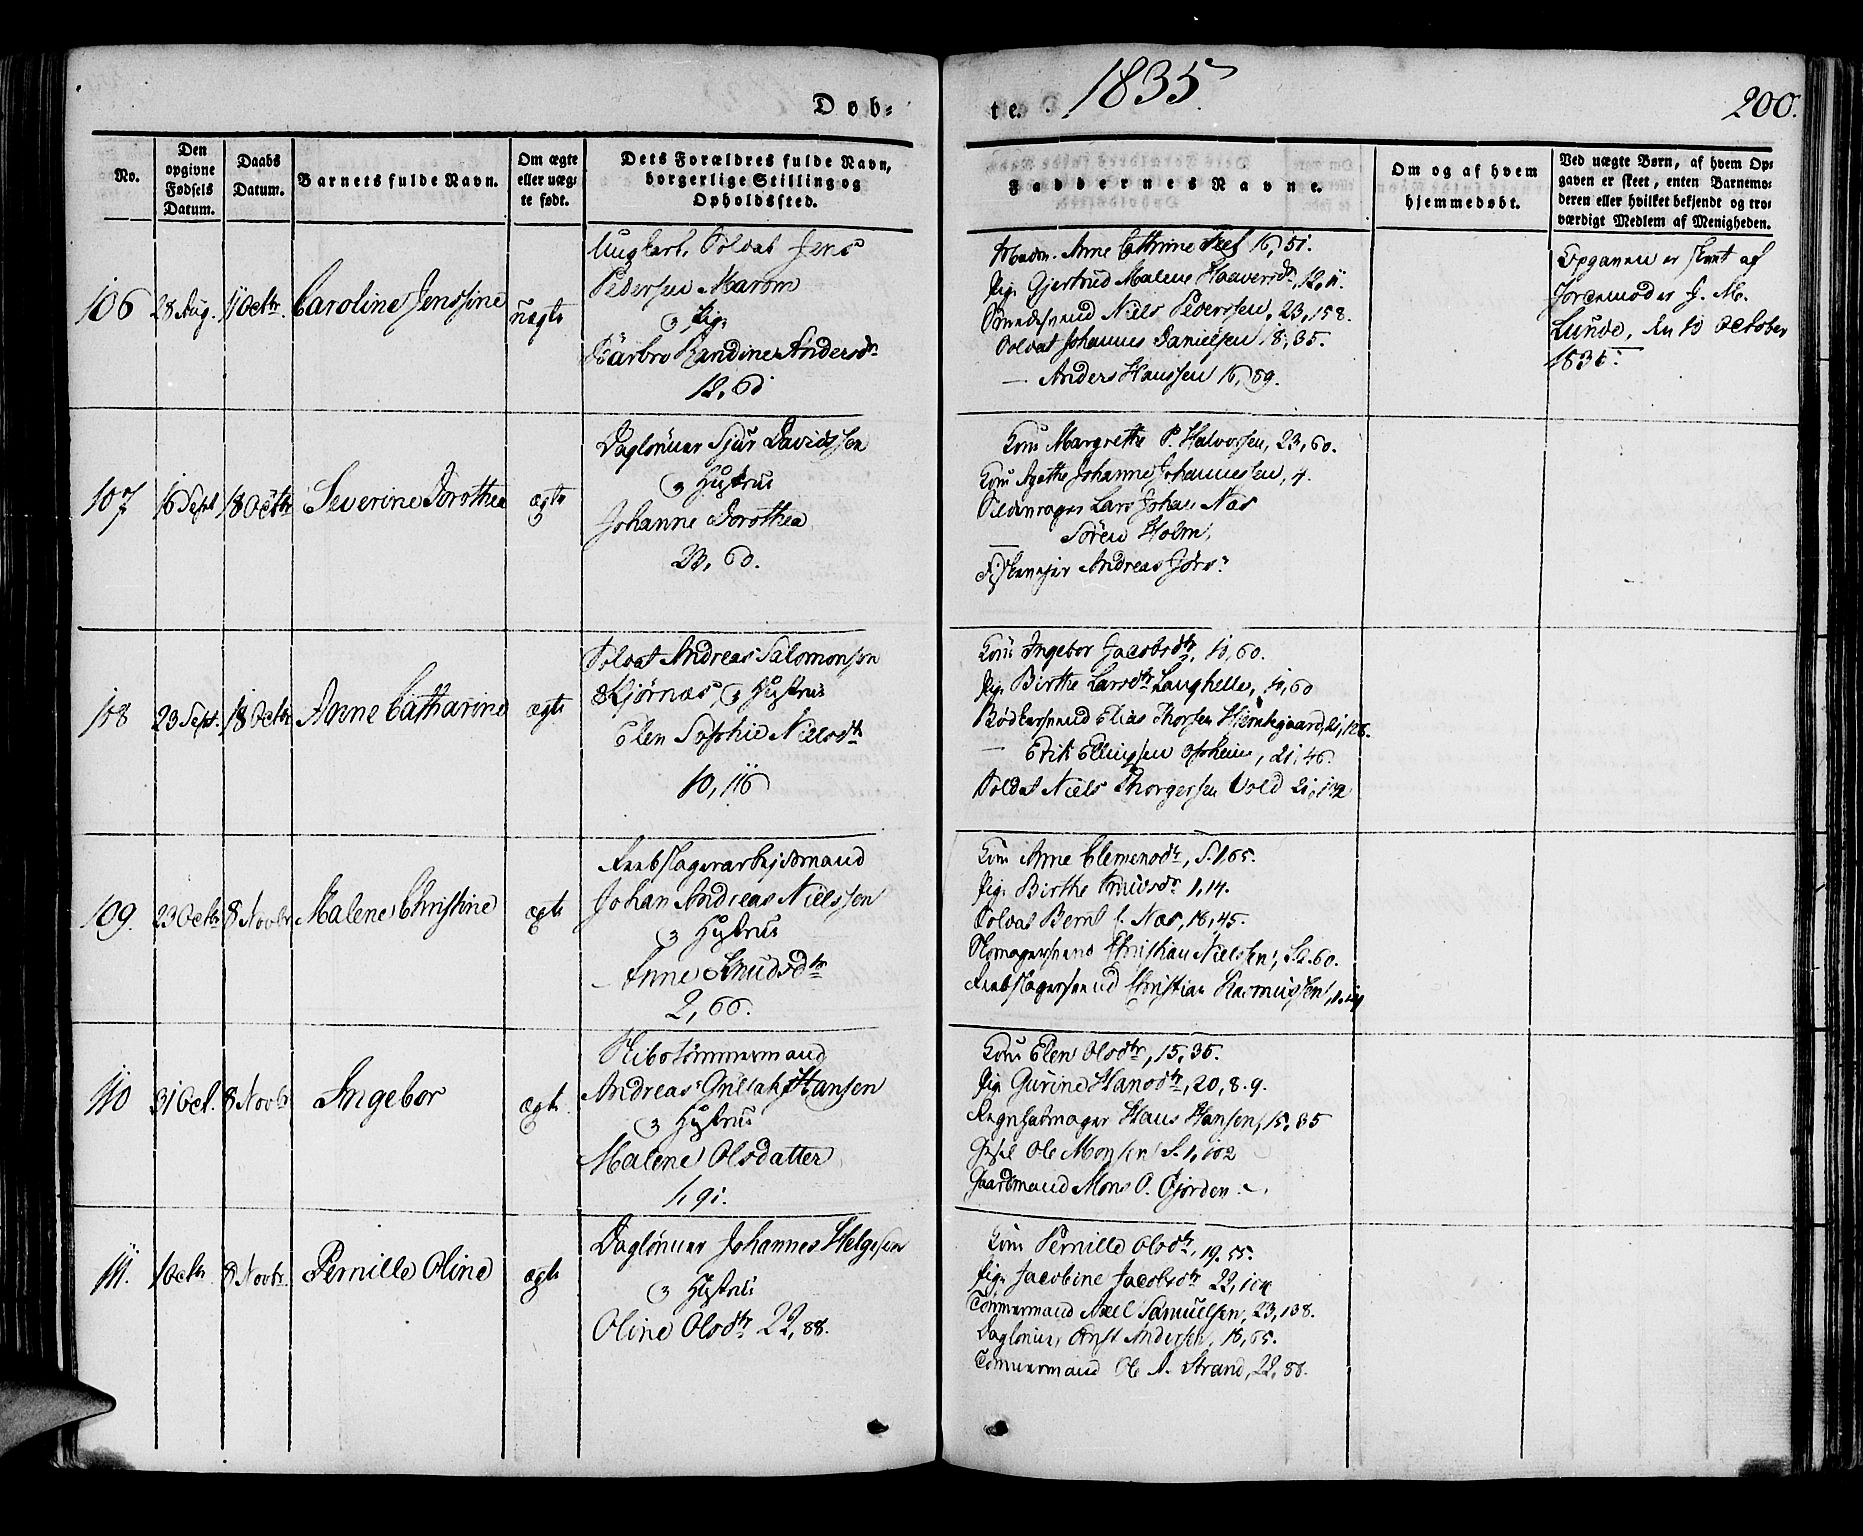 Døb-
te.
1835.
200.
No.
Den opgivne Fødsels Datum.
Daabs Datum.
Barnets fulde Navn.
Om ægte eller uæg-
te født.
Dets Forældres fulde Navn,
borgerlige Stilling og
Opholdssted.
Faddernes Navne.
Om og af hvem
hjemmedøbt.
Ved uægte Børn, af hvem Op-
gaven er skeet, enten Barnemo-
deren eller hvilket bekjendt og tro-
værdigt Medlem af Menigheden.
106
28 Aug.
11 Octbr.
Caroline Jenssine
uægte
Ungkarl, Soldat Jens
Pedersen
& Pige
Barbro Randine Andersdr
12, 60
Madm. Anne Cathrine 16, 51.
Pige Gjertrud Malene 12, 11.
Niels Pederssen, 23, 158.
Soldat Johannes Danielsen, 8, 35.
— Anders Hanssen 16, 89.
Opgaven er skeet af
Jordemoder J. M.
Lunde, den 10 October
1835.
107
16 Sept
18 Octbr
Severine Dorothea
ægte
Daglønner Sjur Davidssen
& Hustrue
Johanne Dorothea
23, 60.
Kone Margrethe P. Halvorsen, 23, 60.
Kone Agathe Johanne Johannessen, 4.
Lars Johan Næs
Søren Holm,
Andreas
108
23 Sept.
18 Octbr
Anne Catharine
ægte
Soldat Andreas Salomonsen
Kjørnæs, & Hustrue
Elen Sophie Nielsdtr
10, 116
Kone Ingebor Jacobsdtr, 10, 60.
Pige Birthe Larsdtr Langhelle, 10, 60
Bødkersvend Elias Thorsen
— Erik Ellingsen Opheim, 21, 46.
Soldat Niels Thorgersen Vold 21, 132
109.
23 Octbr
8 Novbr
Malene Christine
ægte
Johan Andreas Nielssen
& Hustrue
Anne Knudsdtr
2, 66.
Kone Anne Clemensdtr, S. 1, 65.
Pige Birthe Knudsdr 1, 14.
Soldat Bernt C. Næs, 18, 45.
Skomagersvend Christian Nielsen,
Rebslagersvend Christian Rasmussen,
110
31 Oct.
8 Novbr
Ingebor
ægte
Skibstømmermand
Andreas Gullak Hansen
& Hustrue
Malene Olsdatter
1, 91.
Kone Elen Olsdtr, 15, 35.
Pige Gurine Hansdtr, 20, 89.
Hans Hansen, 15, 85
Ole Monsen S. 1, 102
Gaardmand Mons O.
111.
1 Octbr
8 Novbr.
Pernille Oline
ægte
Daglønner Johannes Helgesen
& Hustrue
Oline Olsdtr 22, 88.
Kone Pernille Olsdtr, 19, 55.
Pige Jacobine Jacobsdtr 22, 104
Tømmermand Axel Samuelsen, 23, 138.
Daglønner Ernst Andersen, 18, 65.
Tømmermand Ole A. Strand, 22, 88.